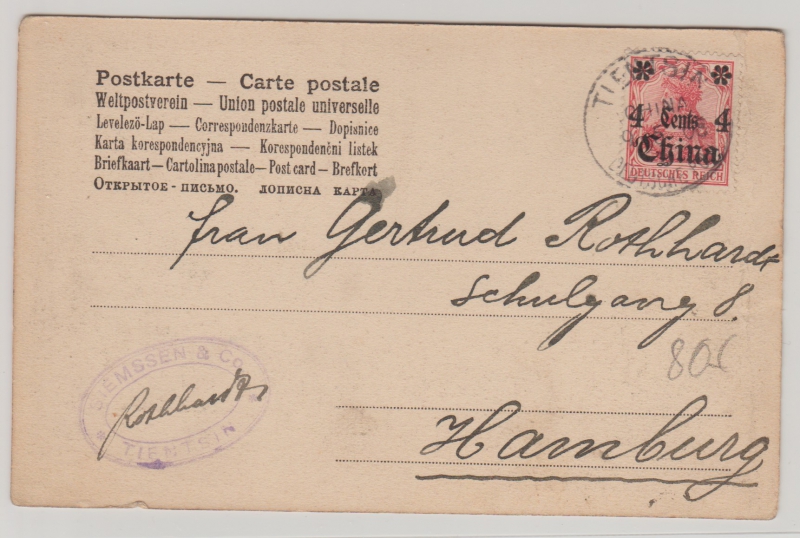 Postkarte — Carte postale
Weltpostverein — Union postale universelle
Levelezö-Lap — Correspondenzkarte — Dopisnice
Karta korespondencyjna — Korespondenční listek
Briefkaart — Cartolina postale — Post card — Brefkort
Открытое - письмо. лописна карта
TIENTSIN
CHINA
4 Cents 4
China
DEUTSCHES REICH
Frau Gertrud Rothhardt
Schulgang 8.
80
SIEMSSEN & Co
Rothhardt
TIENTSIN
Hamburg